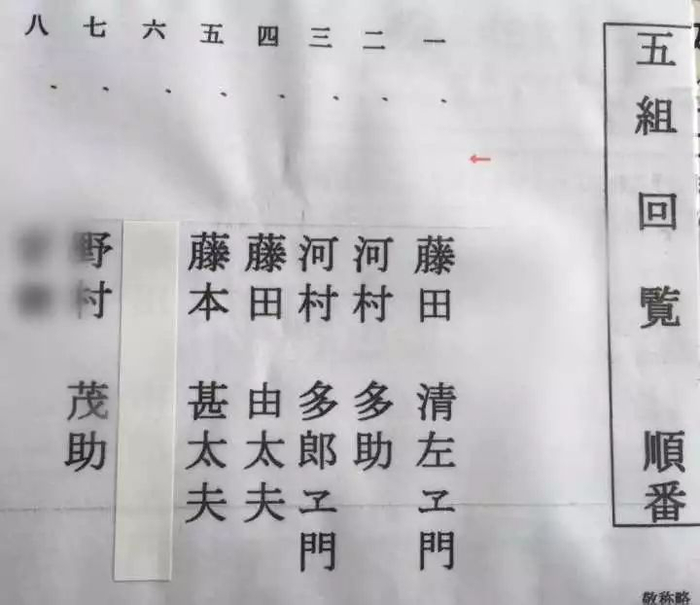 五組回覧 順番
一、藤田 清左ヱ門
二、河村 多助
三、河村 多郎ヱ門
四、藤田 由太夫
五、藤本 甚太夫
六、
七、野村 茂助
八、
敬称略